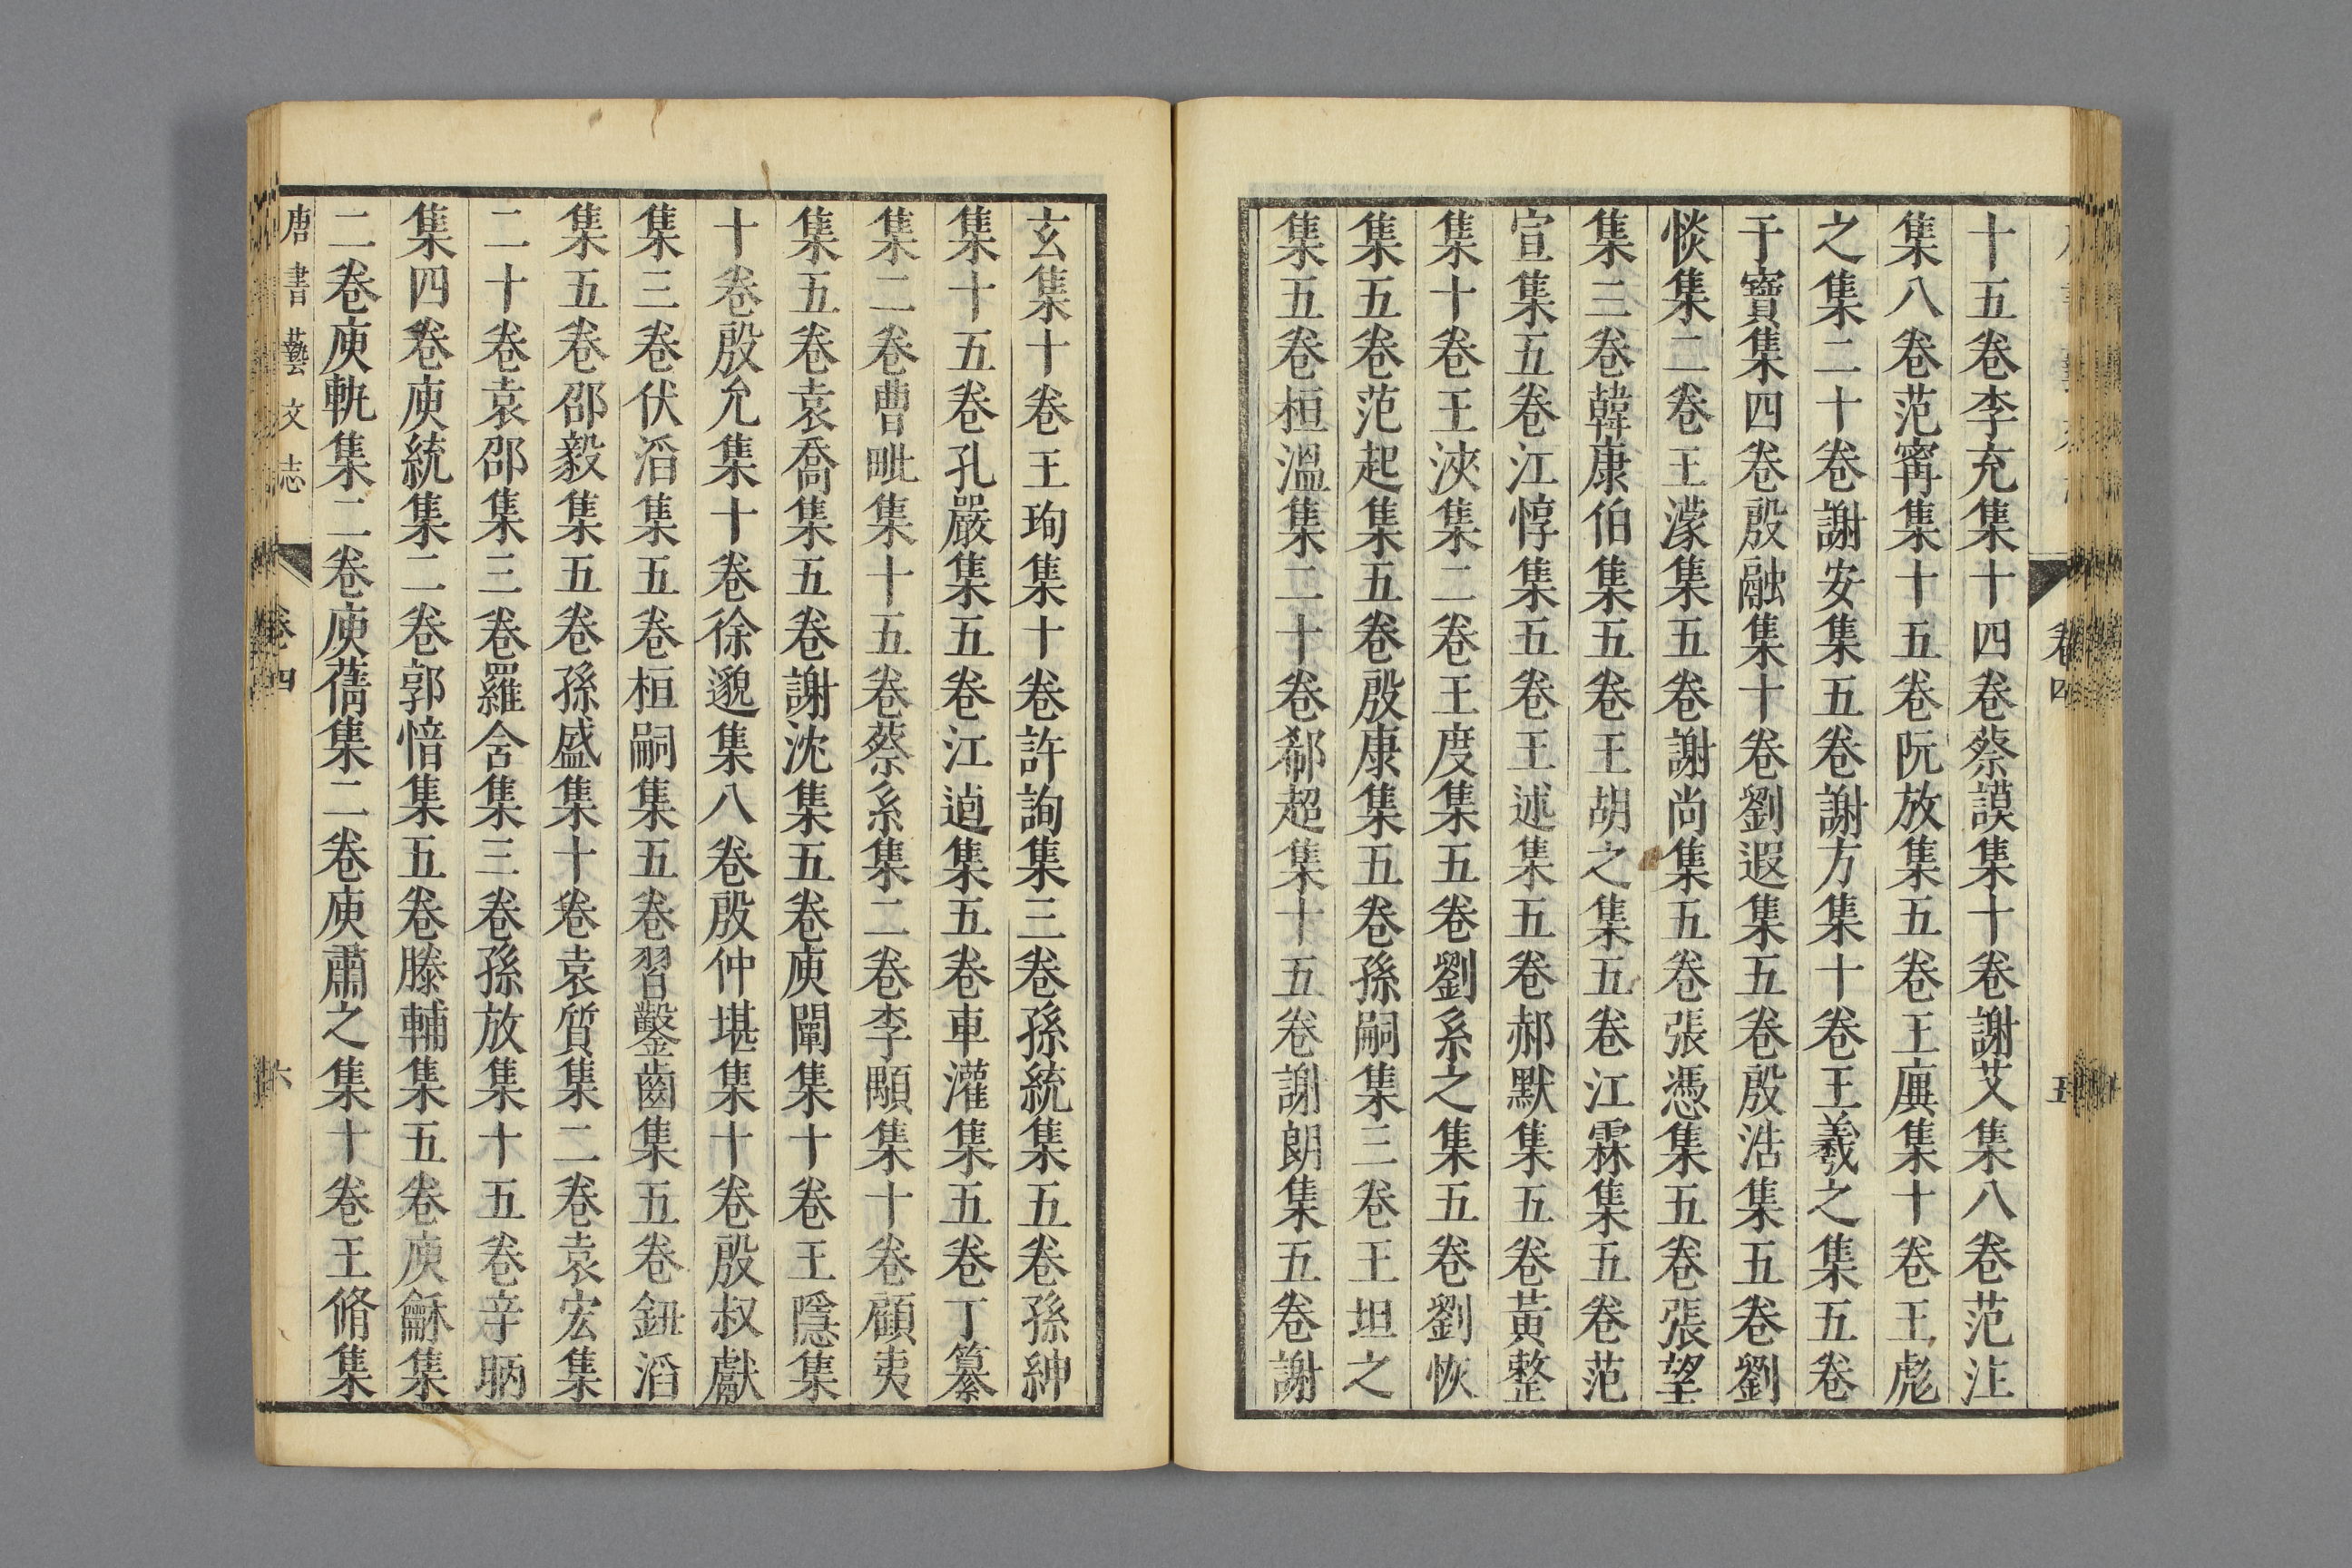 十五卷李充集十四卷蔡謨集十卷謝艾集八卷范汪
集八卷范甯集十五卷阮放集五卷王廙集十卷王彪
之集二十卷謝安集五卷謝万集十卷王羲之集五卷
于寶集四卷殷融集十卷劉遐集五卷殷浩集五卷劉
惔集二卷王濛集五卷謝尚集五卷張憑集五卷張望
集三卷韓康伯集五卷王胡之集五卷江霖集五卷范
宣集五卷江惇集五卷王述集五卷郝默集五卷黃整
集十卷王浹集二卷王度集五卷劉系之集五卷劉恢
集五卷范起集五卷殷康集五卷孫嗣集三卷王坦之
集五卷桓溫集二十卷郗超集十五卷謝朗集五卷謝
卷四
五
玄集十卷王珣集十卷許詢集三卷孫統集五卷孫綽
集十五卷孔嚴集五卷江逌集五卷車灌集五卷丁纂
集二卷曹毗集十五卷蔡系集二卷李顒集十卷顧夷
集五卷袁喬集五卷謝沈集五卷庾闡集十卷王隱集
十卷殷允集十卷徐邈集八卷殷仲堪集十卷殷叔獻
集三卷伏滔集五卷桓嗣集五卷習鑿齒集五卷鈕滔
集五卷邵毅集五卷孫盛集十卷袁質集二卷袁宏集
二十卷袁邵集三卷羅含集三卷孫放集十五卷辛昞
集四卷庾統集二卷郭愔集五卷滕輔集五卷庾龢集
二卷庾軌集二卷庾蒨集二卷庾肅之集十卷王脩集
唐書藝文志
卷四
六